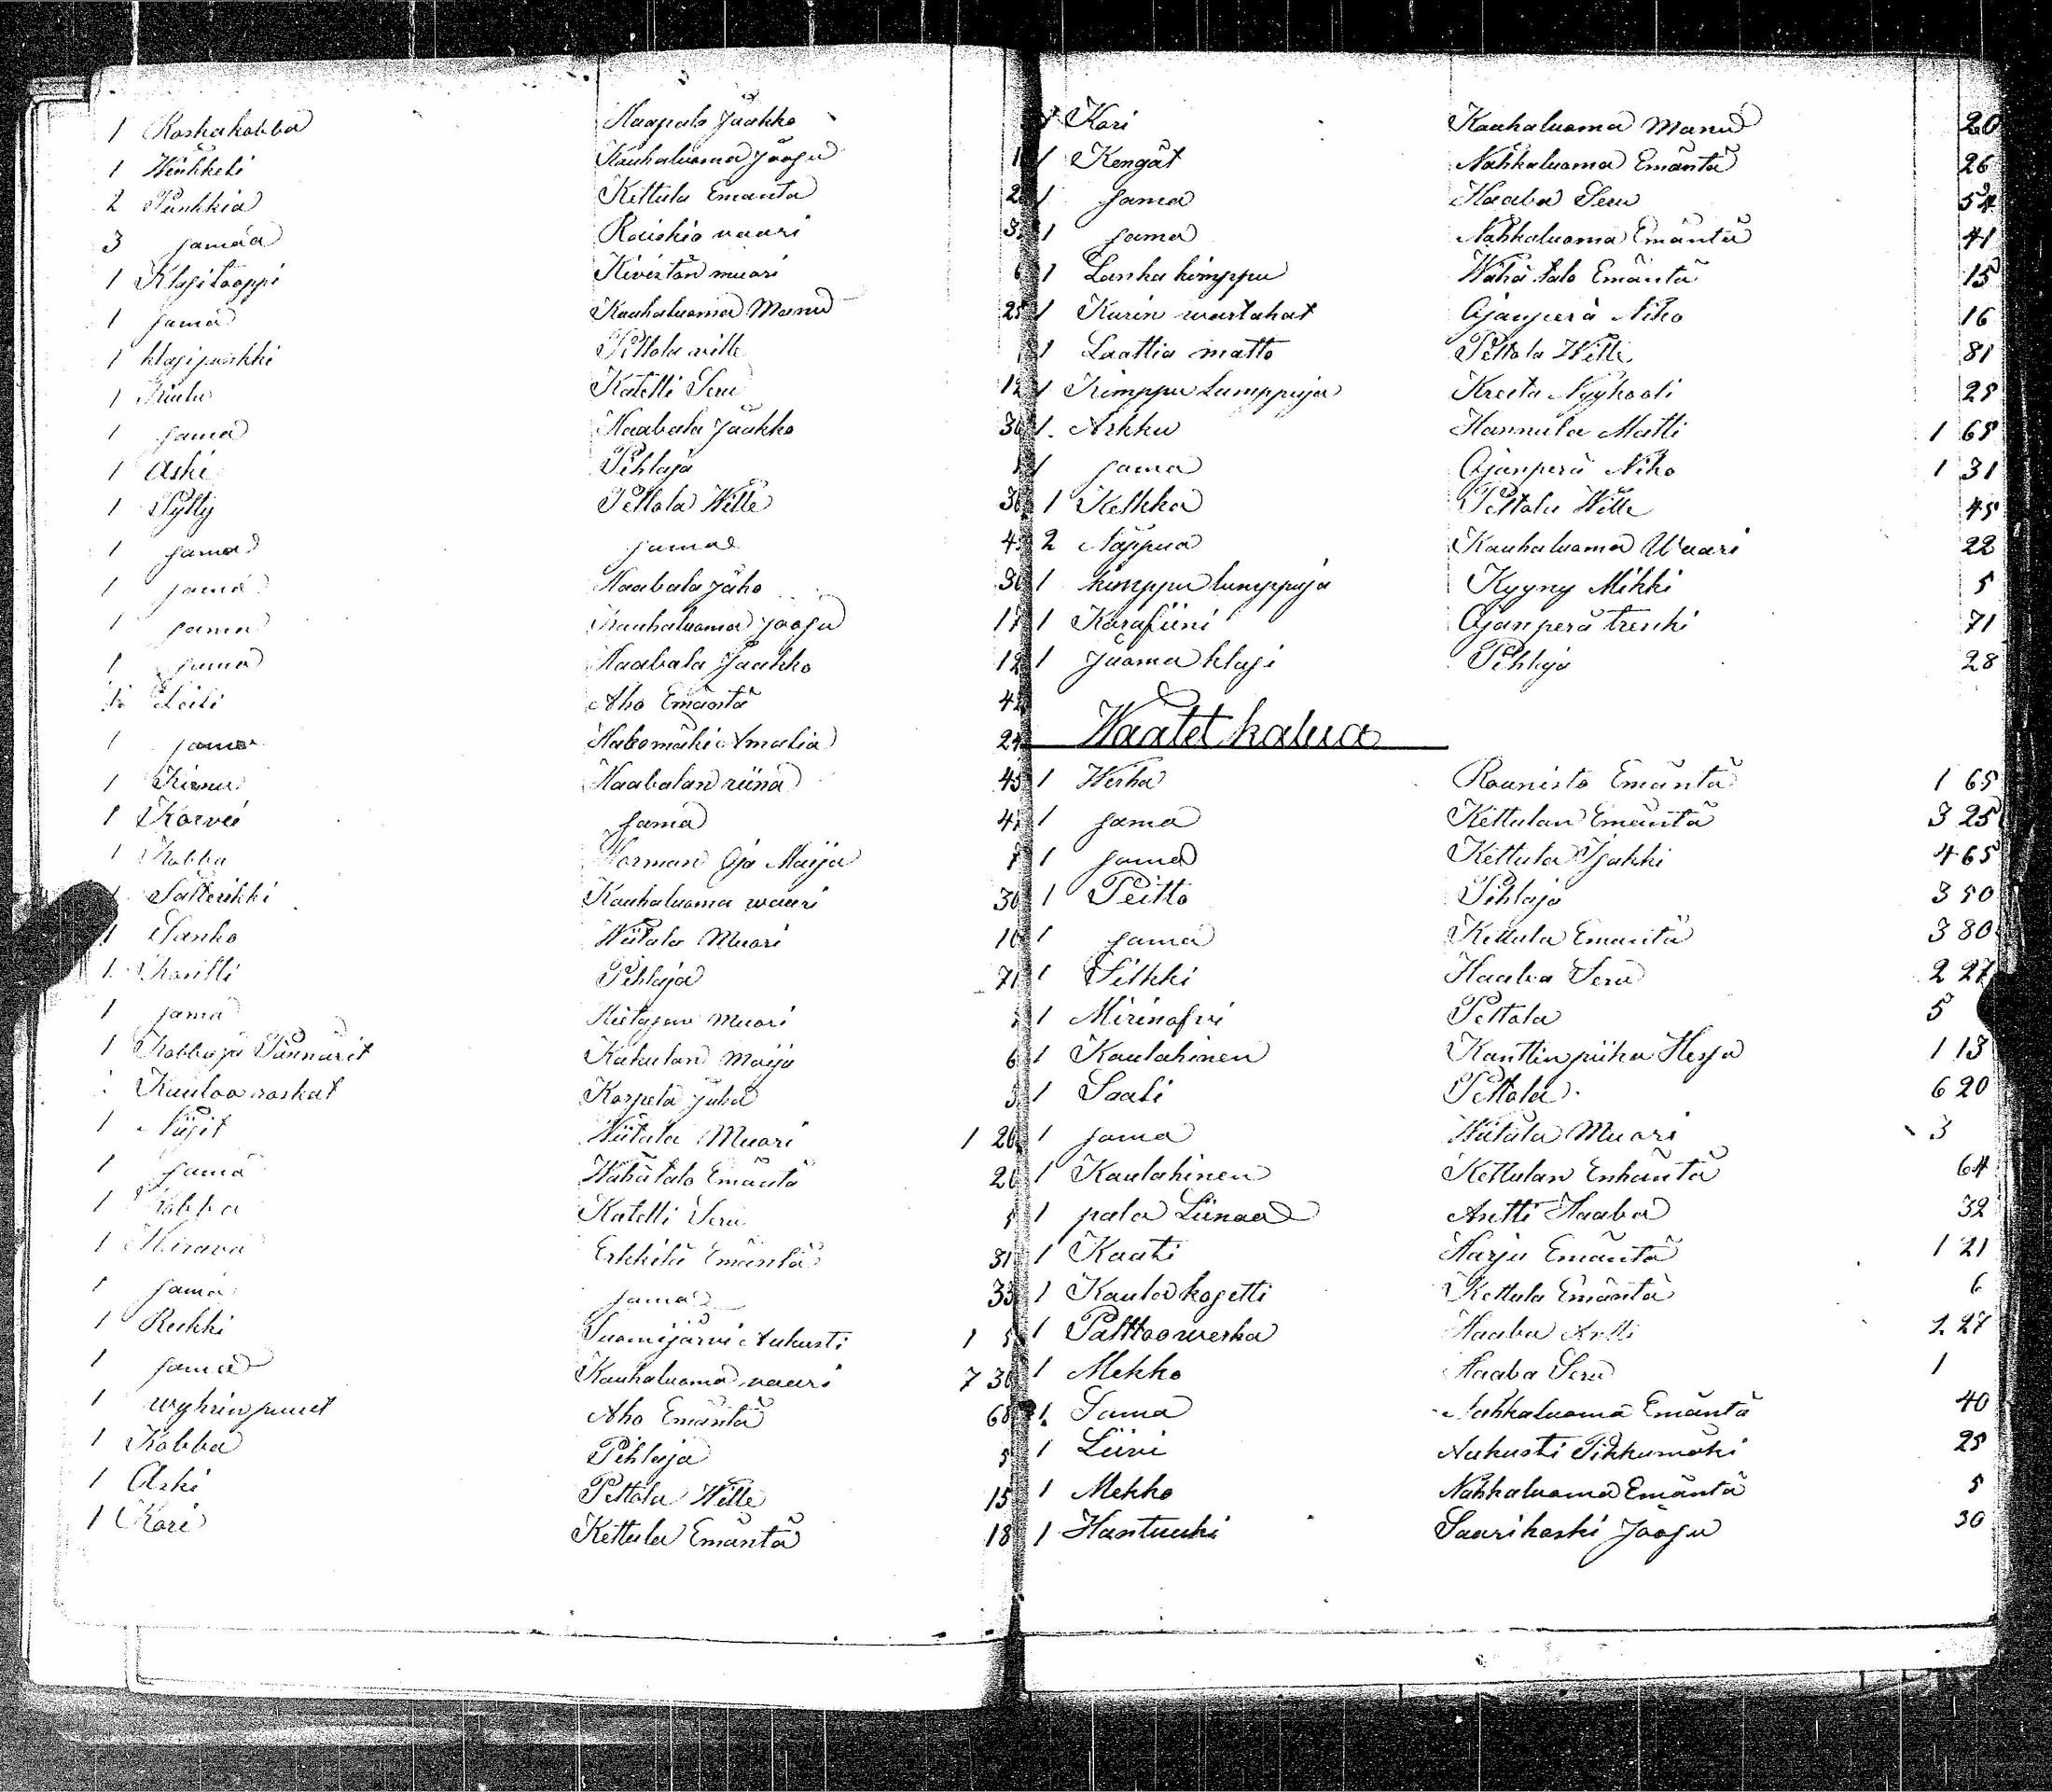 1 Roskakobba Haapala Jaakko
1 Hinkkeli Kauhaluoma Jaagu 1
2 Pänkkiä Kettula Emäntä 2
3 samaa Raiskio vaari 3
1 Klasitooppi Kivistön muori 6
1 sama Kauhaluoma Manu 25
1 klasipurkki Pettola wille
1 Kiulu Katelli Seru 12
1 sama Haabala Jaakko 30
1 Aski Pihlaja
1 Pytty Pettola Wille 30
1 sama sama 4
1 sama Haabala Jaho 30
1 sama Kauhaluoma Jaagu 17
1 sama Haabala Jaakko 12
Leili Aho Emäntä 42
1 sama Amalia 24
1 Kirnu Haabalan riina 45
1 Korvo sama 4
1 Kobba Oja Maija
1 Satterikki Kauhaluoma waari 30
1 Sanko Wiitala Muori 10
1 Pihlaja 71
1 sama Muori
1 Kobba ja Maija 6
Korpela Juha
1 Niisit Wiitala Muori 1 20
1 sama Wähätalo Emäntä 20
1 Kobba Katelli Seru 5
1 Hirava Erkkilä Emäntä 31
1 sama sama 33
1 Rukki Suomijärvi Aukusti 1 5
1 sama Kauhaluoma vaari 7 30
1 wyhrinpuut Aho Emäntä 68
1 Kobba Pihlaja 5
1 Aski Pettola Wille 15
1 Kori Kettula Emäntä 18
1 Kori Kauhaluoma Manu 20
1 Kengät Nahkaluoma Emäntä 26
1 sama Haaba Seru 54
1 sama Nahkaluoma Emäntä 41
1 Lanka kimppu Wähä talo Emäntä 15
1 Kurin wartahat Ojanperä Niko 16
1 Laattia matto Pettola Wille 81
1 Kimppu Lumppuja Kreeta Nyykooli 25
1. Arkku Hannula Matti 1 65
1 sama Ojanperä Niko 1 31
1 Kelkka Pettola Wille 45
2 Nappua Kauhaluoma Waari 22
1 kimppu lumppuja Kyyny Mikki 5
1 Karafiini Ojanperä trenki 71
1 Juoma klasi Pihlaja 28
Waatet kalua
1 Werka Rounisto Emäntä 1 65
1 sama Kettulan Emäntä 3 25
1 sama Kettula Isakki 4 65
1 Peitto Pihlaja 3 50
1 sama Kettula Emäntä 3 80
1 Silkki Haaba Seru 2 27
1 Pettola 5
1 Kaulahinen Kanttin piika Hesja 1 13
1 Saali Pettola 6 20
1 sama Wiitala Muori 3
1 Kaulahinen Kettulan Emäntä 64
1 pala Liinaa Antti Haaba 32
1 Kaati Harju Emäntä 1 21
1 Kettula Emäntä 6
1 Palttoowerka Haaba Antti 2 27
1 Mekko Haaba Seru 1
1 Sama Nahkaluoma Emäntä 40
1 Liivi Aukusti Pikkumäki 25
1 Mekko Nahkaluoma Emäntä 5
1 Hantuuki Saarikoski Jaagu 30